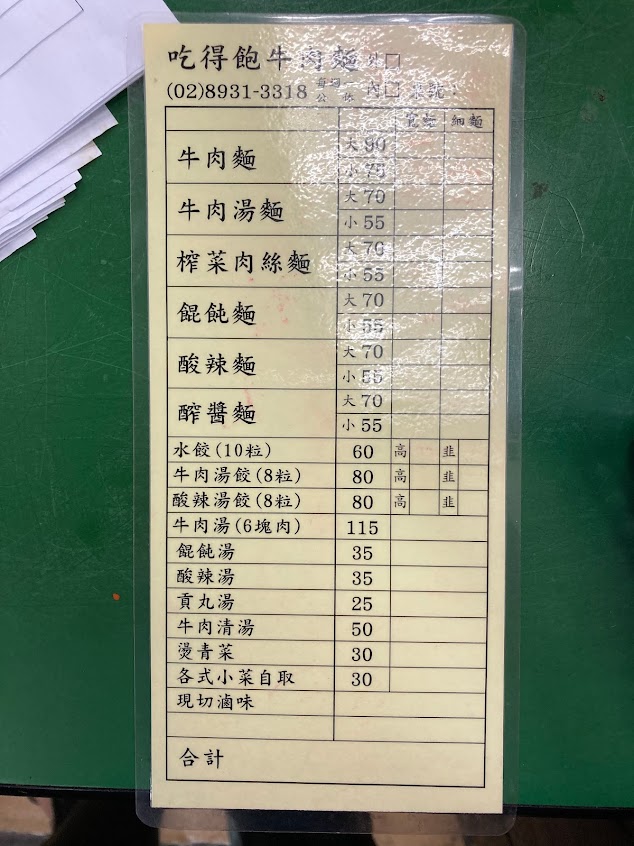 吃得飽牛肉麵 外□
(02)8931-3318 內□ 桌號：
寬麵 細麵
牛肉麵 大 90
小 75
牛肉湯麵 大 70
小 55
榨菜肉絲麵 大 70
小 55
餛飩麵 大 70
小 55
酸辣麵 大 70
小 55
醡醬麵 大 70
小 55
水餃(10粒) 60 高 韭
牛肉湯餃(8粒) 80 高 韭
酸辣湯餃(8粒) 80 高 韭
牛肉湯(6塊肉) 115
餛飩湯 35
酸辣湯 35
貢丸湯 25
牛肉清湯 50
燙青菜 30
各式小菜自取 30
現切滷味
合計